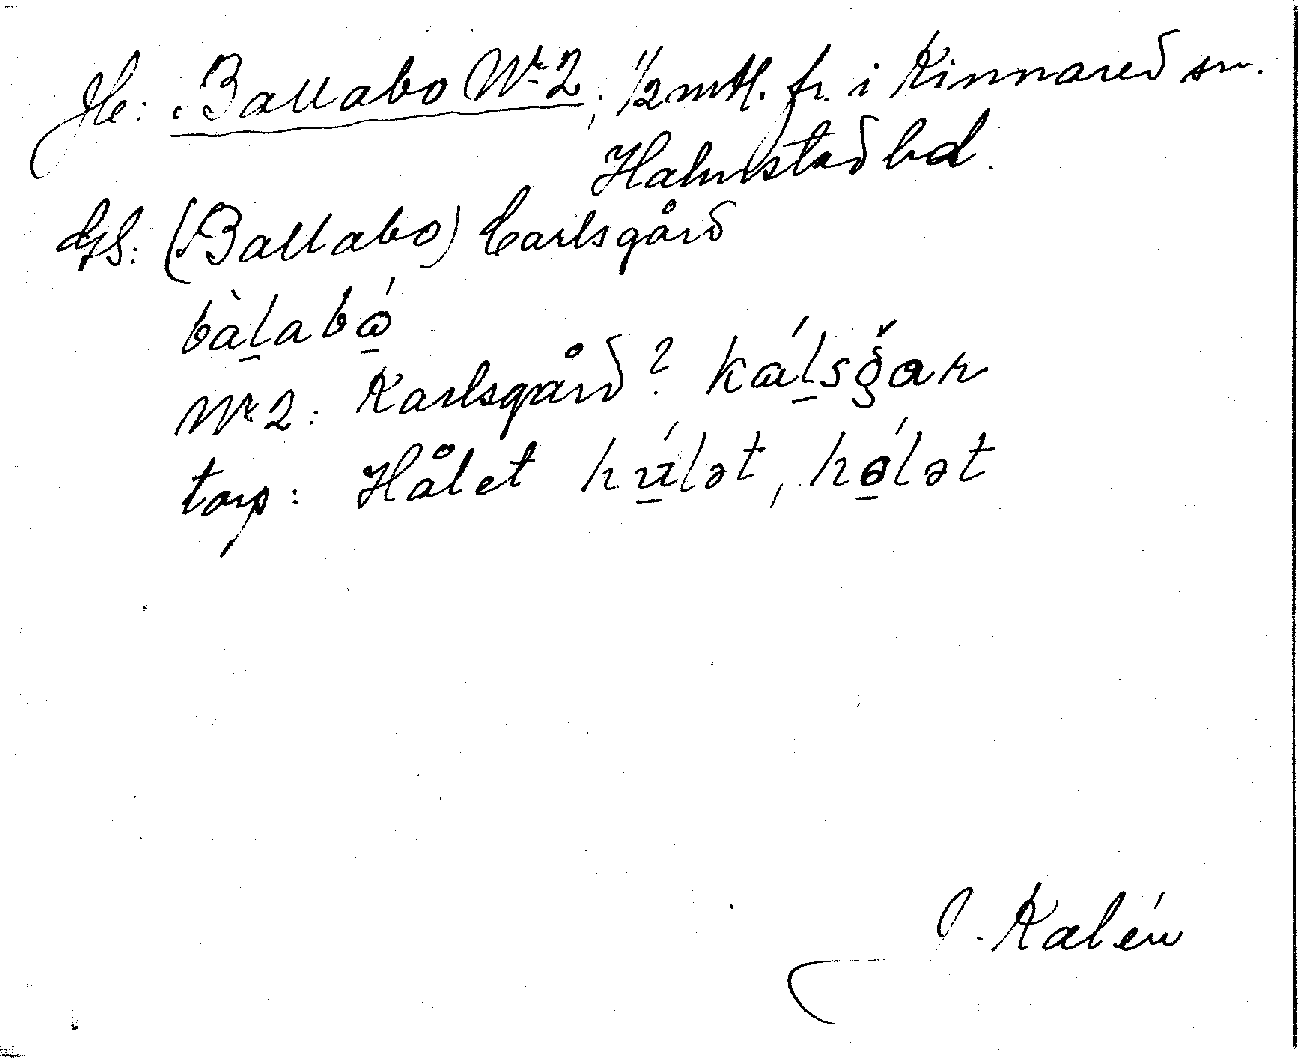 He: Ballabo Nr 2, 1/2 mtl. fr. i Kinnared sn.
Halmstad bd.
GS: (Ballabo) Carlsgård
bàḻabó̱
Nr 2: Karlsgård? káḻsğar
torp: Hålet hú̱lət, hó̱lət
J. Kalén